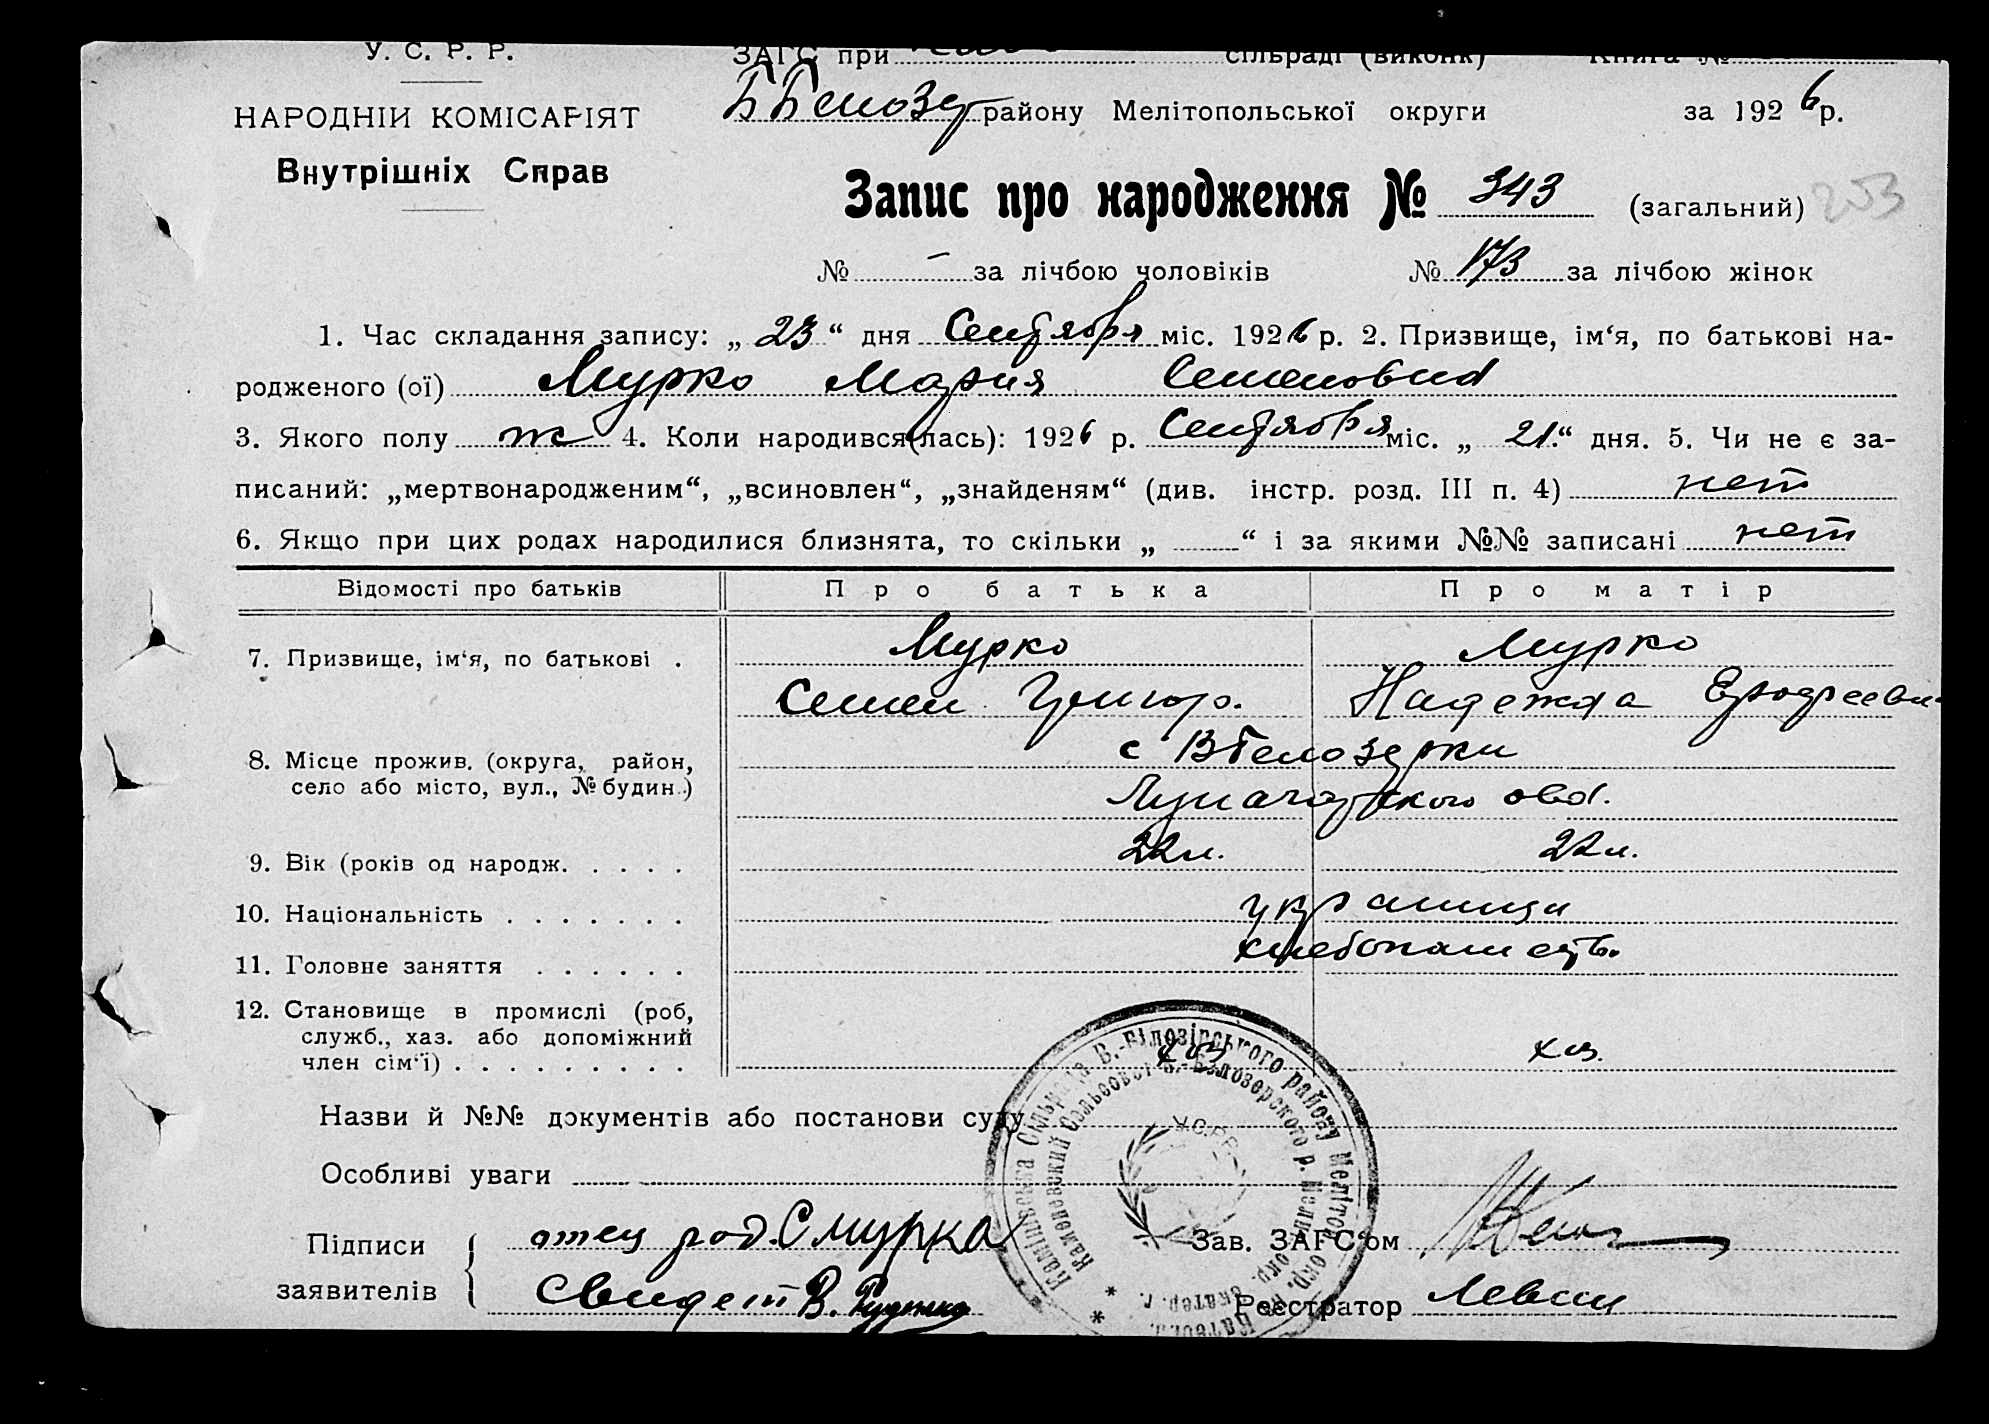 У. С. Р. Р.
НАРОДНІЙ КОМІСАРІЯТ
Внутрішніх Справ
ЗАГС при сільраді (виконк) Книга №
ББелозер району Мелітопольської округи за 1926 р.
Запис про народження № 343 (загальний) 253
№ – за лічбою чоловіків № 173 за лічбою жінок
1. Час складання запису: „ 23 “ дня Сентября міс. 1926 р. 2. Призвище, ім‘я, по батькові на-
родженого (ої) Мурко Мария Семеновна
3. Якого полу ж 4. Коли народився(лась): 1926 р. Сентября міс. „ 21 “ дня. 5. Чи не є за-
писаний: „мертвонародженим“, „всиновлен“, „знайденям“ (див. інстр. розд. III п. 4) нет
6. Якщо при цих родах народилися близнята, то скільки „ “ і за якими №№ записані нет
Відомості про батьків Про батька Про матір
7. Призвище, ім‘я, по батькові . Мурко Мурко
Семен Григор. Надежда
8. Місце прожив. (округа, район, с ВБелозерки
село або місто, вул., № будин.) овд.
9. Вік (років од народж. . . . . 22 л. 22 л.
10. Національність . . . . . . . украинцы
11. Головне заняття . . . . . . хлебопашеств.
12. Становище в промислі (роб,
служб., хаз. або допоміжний
член сім‘ї) . . . . . . . . . хоз хоз.
Назви й №№ документів або постанови суду
Особливі уваги
Підписи заявителів
отец род. С Мурка
Свидет В. Руденко
Зав. ЗАГС‘ом
Реєстратор Левши
Кам‘янська Сільрада В.-Білозірського району Меліто окр.
Сельсовет В.-Белозерского р.
У.С.Р.Р.